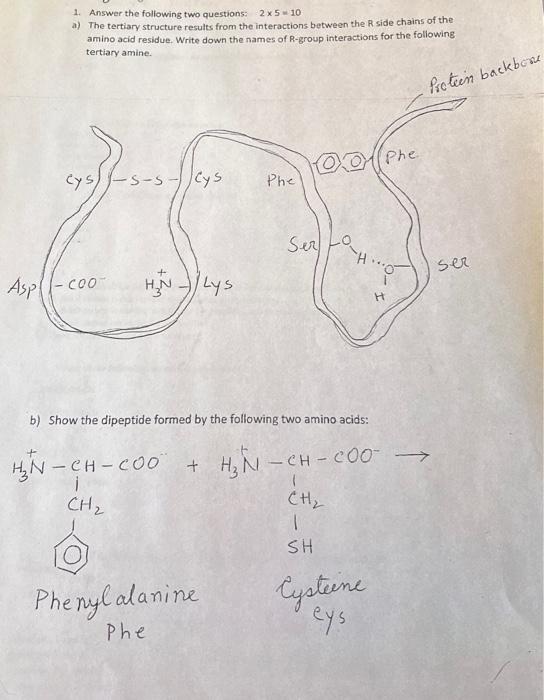 1. Answer the following two questions: 2 x 5 = 10
a) The tertiary structure results from the interactions between the R side chains of the
amino acid residue. Write down the names of R-group interactions for the following
tertiary amine.
Protein backbone
Cys -S-S- Cys Phe Phe
Ser O H...O H Ser
Asp -COO⁻ H₃N⁺ Lys
b) Show the dipeptide formed by the following two amino acids:
H₃N⁺ - CH - COO⁻ + H₃N⁺ - CH - COO⁻ →
CH₂ CH₂
SH
Phenylalanine Cysteine
Phe Cys